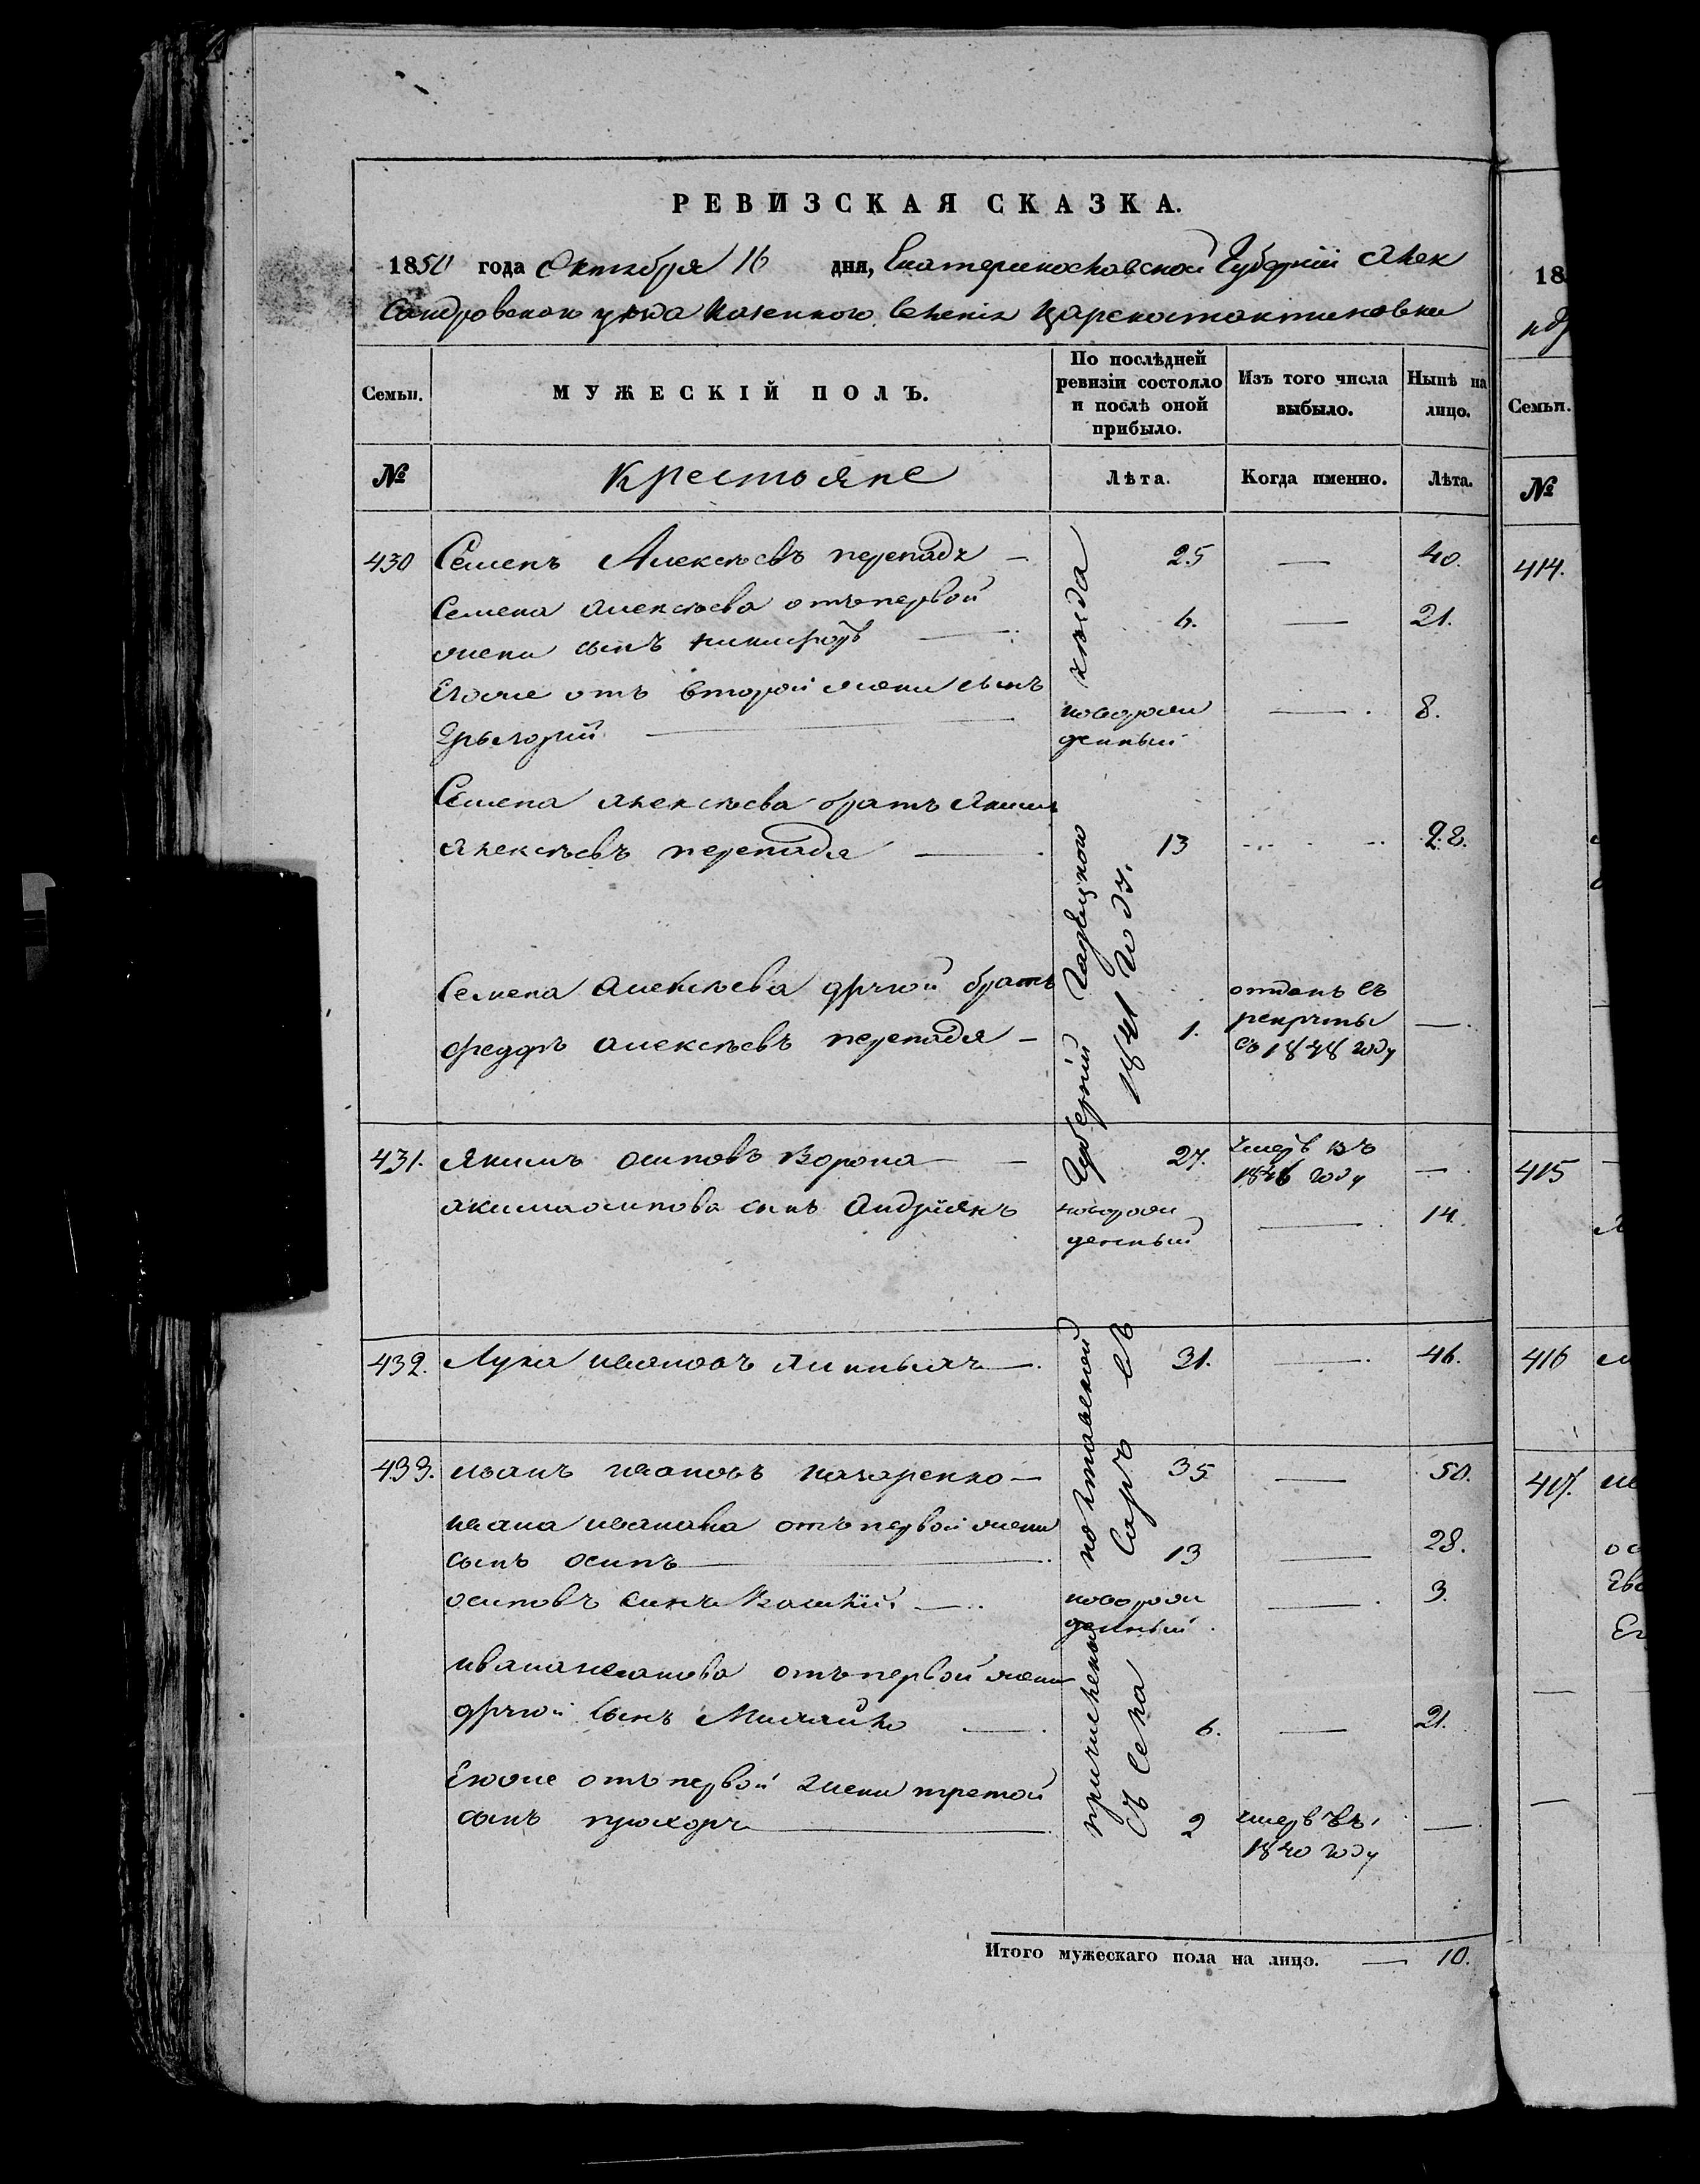 РЕВИЗСКАЯ СКАЗКА.
1850 года Октября 16 дня, Екатеринославской Губерніи Алек
сандровскаго уѣзда Казенного селенія Царекостантиновки
Семьи.
МУЖЕСКІЙ ПОЛЪ.
По послѣдней ревизіи состояло и послѣ оной прибыло.
Изъ того числа выбыло.
Нынѣ на лицо.
№
Крестьяне
Лѣта.
Когда именно.
Лѣта.
430 Семенъ Алексѣевъ перепадя — 25 — 40.
Семена Алексѣева отъ первой
жени сынъ Никифоръ — 6. — 21.
Егоже отъ второй жени сынъ
Грыгорій — новорож
денный — 8.
Семена Алексѣева братъ Яким
Алексѣевъ перепадя — 13 — 28.
Семена Алексѣева другой братъ
Федоръ Алексѣевъ перепадя — 1. —
отданъ въ
рекруты
въ 1848 году
431. Якимъ Осиповъ Ворона — 27. умеръ въ
1846 году —
Якима Осипова сынъ Андріянъ новорож
денный — 14.
432. Лука Ивановъ — 31. — 46.
433. Иванъ Ивановъ Назаренко — 35 — 50.
Ивана Иванова отъ первой жени
сынъ Осипъ — 13 — 28.
Осиповъ синъ — новорож
денный — 3.
Ивана Иванова отъ первой жени
другой сынъ Михайло — 6. — 21.
Егоже отъ первой жени третой
сынъ Прохоръ — 2 умеръ въ
1840 году —
причисленны полтавской Губерніи Гадяцкого уѣзда
съ села Саръ въ 1841 году.
Итого мужескаго пола на лицо. — 10.
18
Семьи.
№
414.
415
416
417.